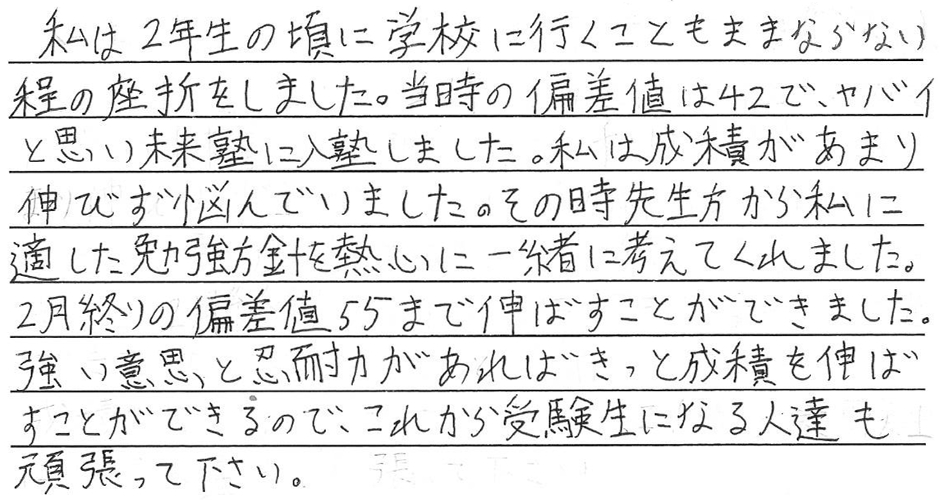 私は2年生の頃に学校に行くこともままならない
程の座折をしました。当時の偏差値は42で、ヤバイ
と思い未来塾に入塾しました。私は成積があまり
伸びず悩んでいました。その時先生方から私に
適した勉強方針を熱心に一緒に考えてくれました。
2月終りの偏差値55まで伸ばすことができました。
強い意思と忍耐力があればきっと成積を伸ば
すことができるので、これから受験生になる人達も
頑張って下さい。